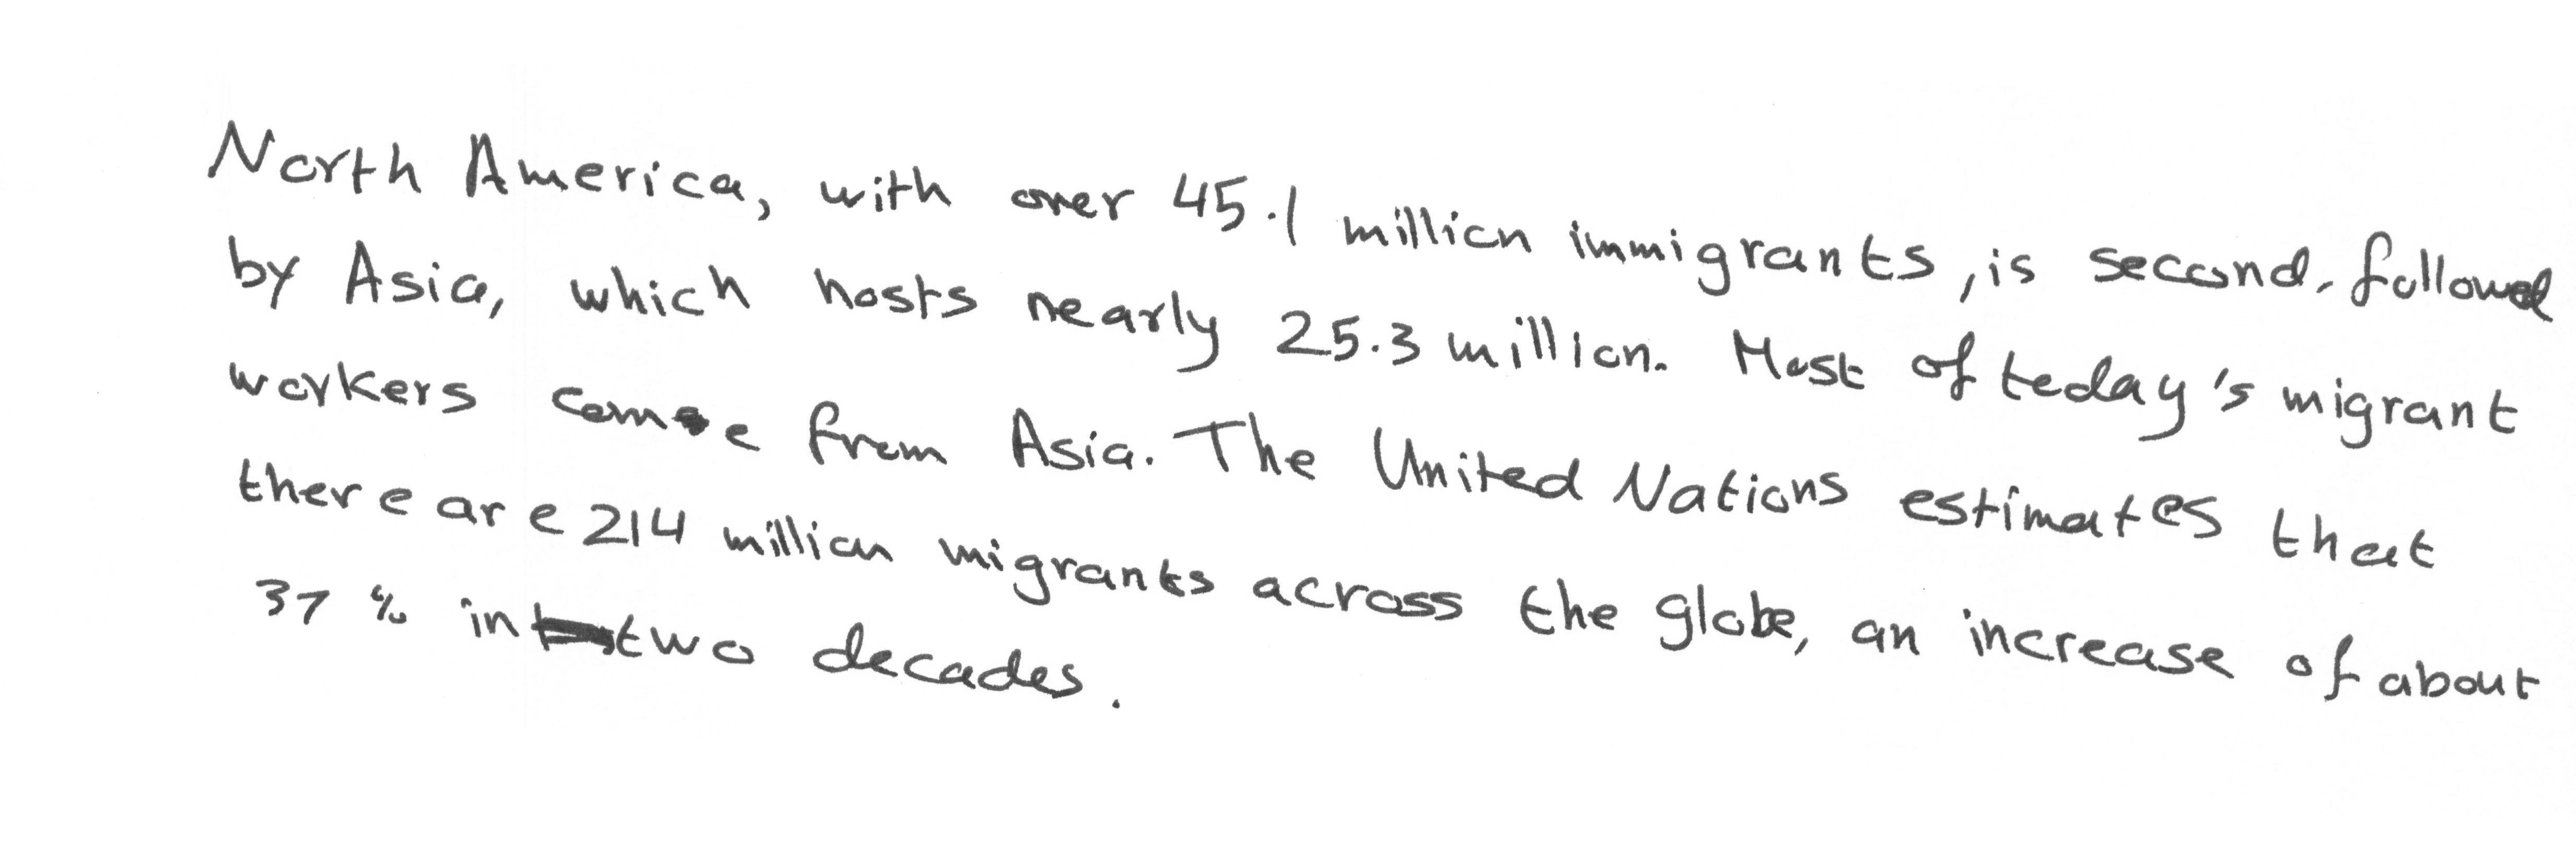 North America, with over 45.1 million immigrants, is second, followed
by Asia, which hosts nearly 25.3 million. Most of today's migrant
workers come from Asia. The United Nations estimates that
there are 214 million migrants across the globe, an increase of about
37 % in two decades.